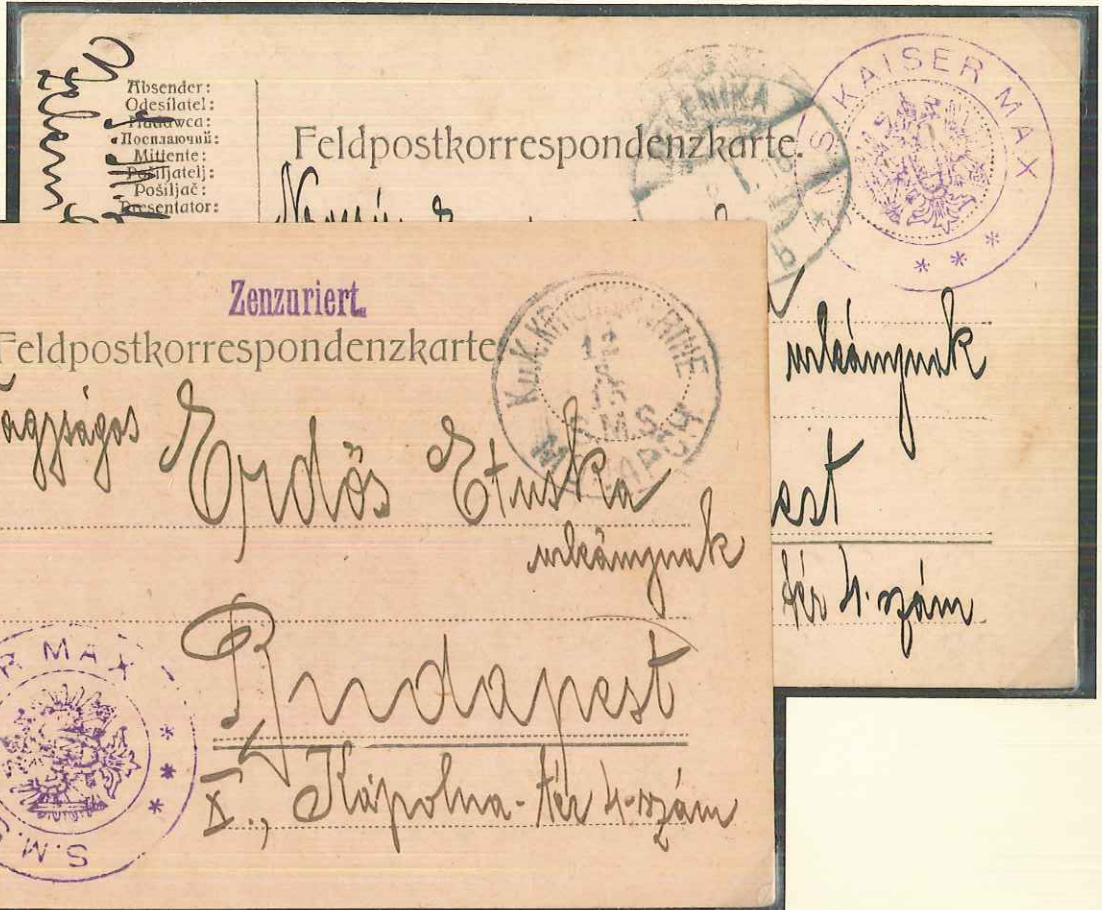 Absender:
Odesílatel:
Nadawca:
Посилаючий:
Mittente:
Pošiljatelj:
Pošiljač:
Presentator:
Feldpostkorrespondenzkarte.
S. M. S. KAISER MAX
* * *
urleánynak
est
tér 4. szám
Zenzuriert.
Feldpostkorrespondenzkarte
agyságos
Erdős Etuska
urleánynak
Budapest
X., Kápolna-tér 4. szám
K.u.K. KRIEGSMARINE
S.M.S.
R MAX
* * *
S.M.S